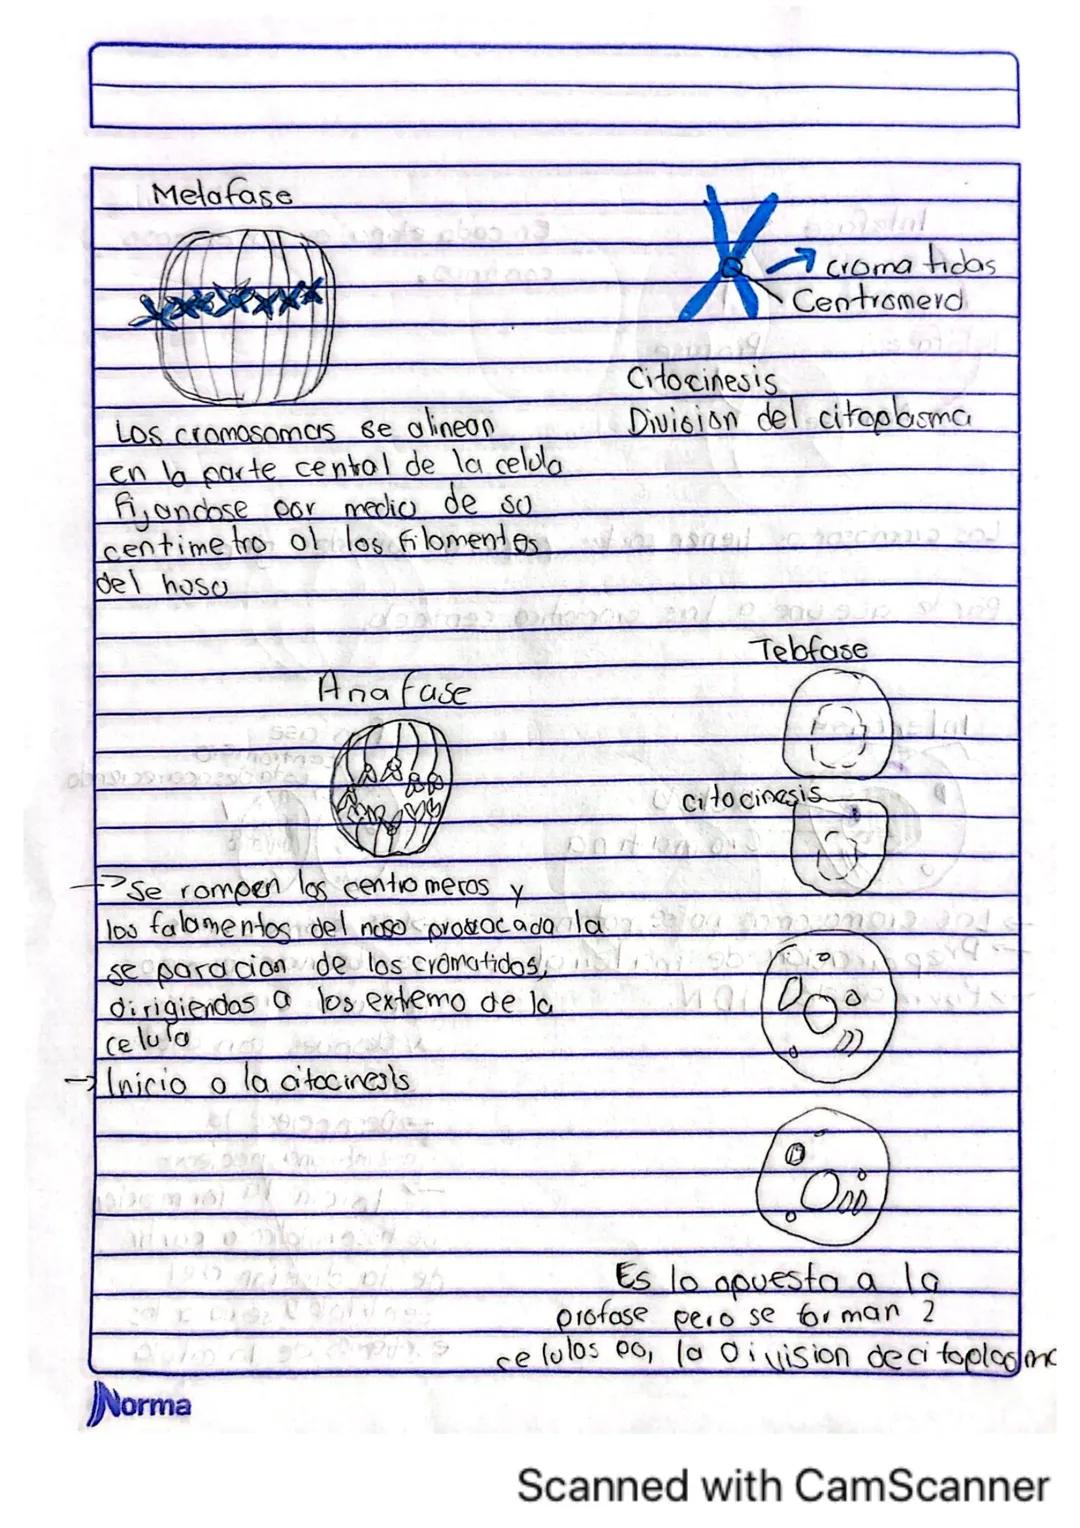 Metafase
croma tidas
Centromero
Citocinesis
Division del citoplasma
Los cromosomas se alinean
en la parte central de la celula
fijandose por medio de su
centimetro a los filamentos
del huso
Anafase
→ Se rompen los centromeros y
los falamentos del huso provocada la
se paracion de los cromatidas,
dirigiendas a los extremo de la
celula
→ Inicio a la citocinesis
Telofase
citocinesis
Es lo opuesta a la
profase pero se forman 2
celulas por la Division de citoplasma
Norma
Scanned with CamScanner